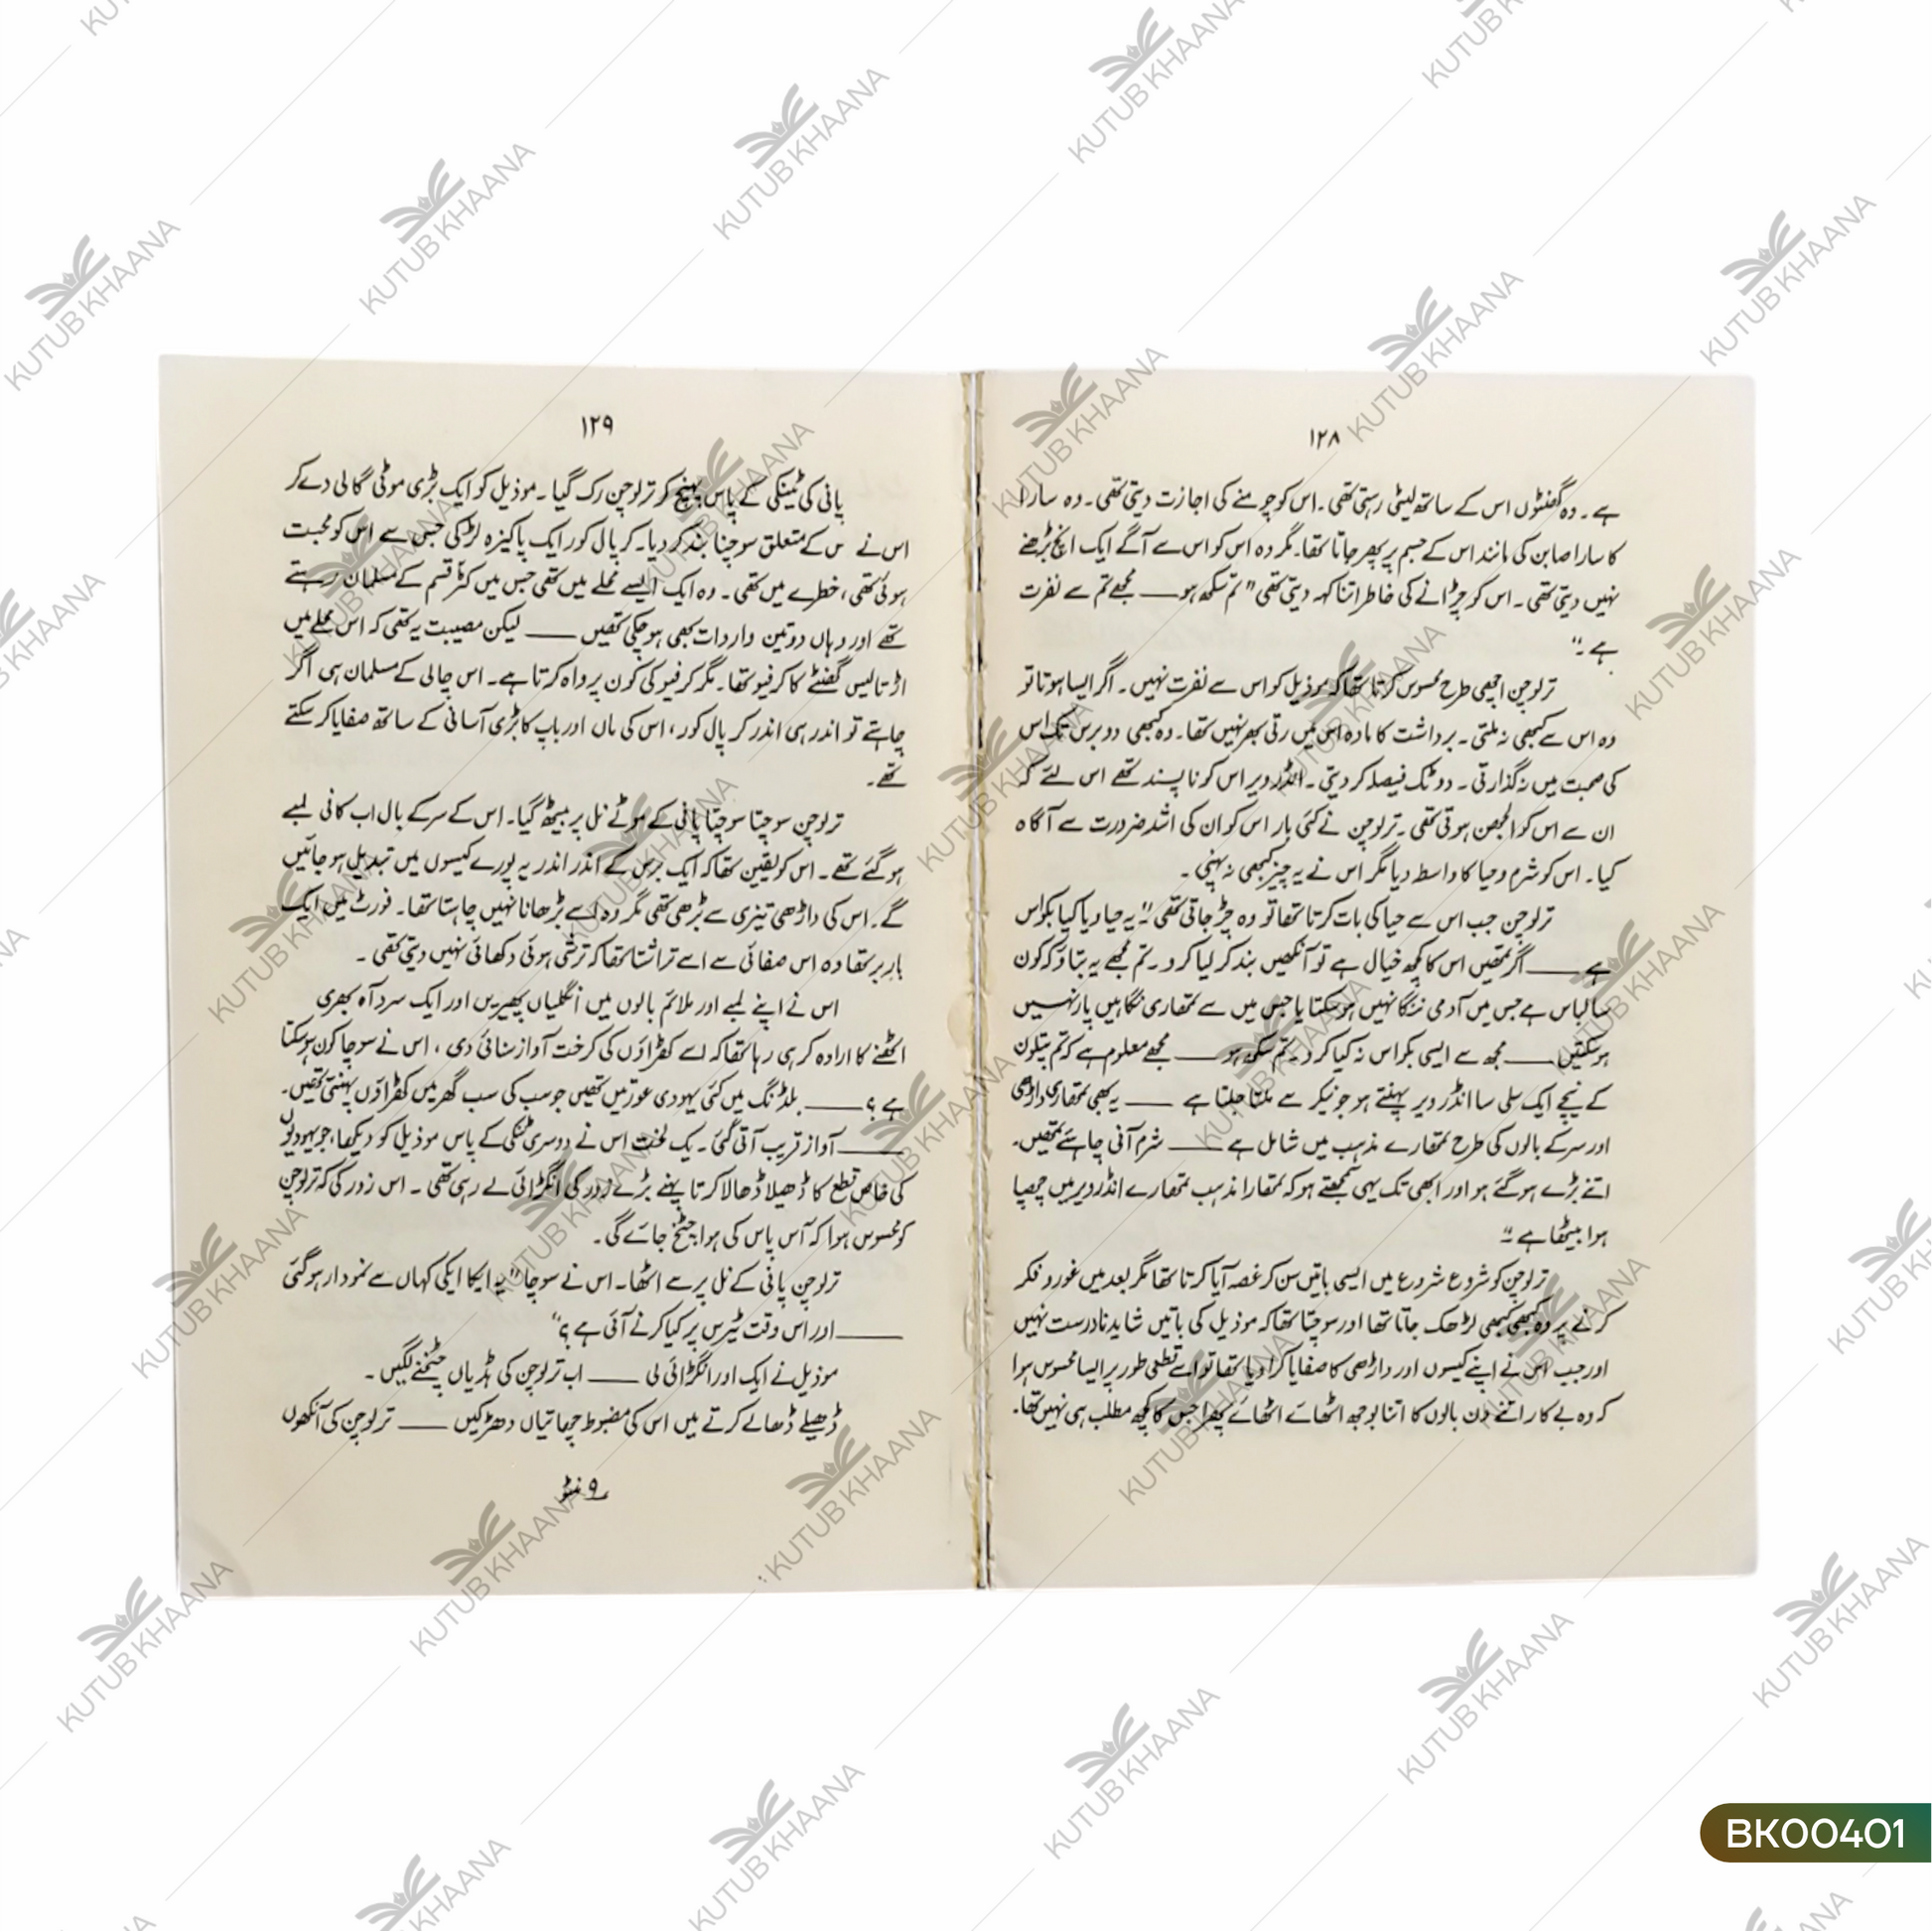 ۱۲۸
ہے۔ وہ گھنٹوں اس کے ساتھ لیٹی رہتی تھی۔ اس کو چومنے کی اجازت دیتی تھی۔ وہ سارا
کا سارا صابن کی مانند اس کے جسم پر پھر جاتا تھا۔ مگر وہ اس کو اس سے آگے ایک انچ بڑھنے
نہیں دیتی تھی۔ اس کو چڑانے کی خاطر اتنا کہہ دیتی تھی "تم سکھ ہو ـــــ مجھے تم سے نفرت
ہے۔"
ترلوچن اچھی طرح محسوس کرتا تھا کہ موذیل کو اس سے نفرت نہیں۔ اگر ایسا ہوتا تو
وہ اس سے کبھی نہ ملتی۔ برداشت کا مادہ اس میں رتی بھر نہیں تھا۔ وہ کبھی دو برس تک اس
کی صحبت میں نہ گذارتی۔ دو ٹک فیصلہ کر دیتی۔ انڈر ویر اس کو ناپسند تھے اس لئے کہ
ان سے اس کو الجھن ہوتی تھی۔ ترلوچن نے کئی بار اس کو ان کی اشد ضرورت سے آگاہ
کیا۔ اس کو شرم و حیا کا واسطہ دیا مگر اس نے یہ چیز کبھی نہ پہنی۔
ترلوچن جب اس سے حیا کی بات کرتا تھا تو وہ چڑ جاتی تھی "یہ حیا ویا کیا بکواس
ہے ـــــ اگر تمھیں اس کا کچھ خیال ہے تو آنکھیں بند کر لیا کرو۔ تم مجھے یہ بتاؤ کہ کون
سا لباس ہے جس میں آدمی ننگا نہیں ہو سکتا یا جس میں سے تمھاری نگاہیں پار نہیں
ہو سکتیں ـــــ مجھ سے ایسی بکواس نہ کیا کرو۔ تم سکھ ہو ـــــ مجھے معلوم ہے کہ تم پتلون
کے نیچے ایک سلی سا انڈر ویر پہنتے ہو جو نیکر سے ملتا جلتا ہے ـــــ یہ بھی تمھاری داڑھی
اور سر کے بالوں کی طرح تمھارے مذہب میں شامل ہے ـــــ شرم آنی چاہئے تمھیں۔
اتنے بڑے ہو گئے ہو اور ابھی تک یہی سمجھتے ہو کہ تمھارا مذہب تمھارے انڈر ویر میں چھپا
ہوا بیٹھا ہے"
ترلوچن کو شروع شروع میں ایسی باتیں سن کر غصہ آیا کرتا تھا مگر بعد میں غور و فکر
کرنے پر وہ کبھی کبھی لڑھک جاتا تھا اور سوچتا تھا کہ موذیل کی باتیں شاید نادرست نہیں
اور جب اس نے اپنے کیسوں اور داڑھی کا صفایا کرا دیا تھا تو اسے قطعی طور پر ایسا محسوس ہوا
کہ وہ بے کار اتنے دن بالوں کا اتنا بوجھ اٹھائے اٹھائے پھرا جس کا کچھ مطلب ہی نہیں تھا۔
۱۲۹
پانی کی ٹینکی کے پاس پہنچ کر ترلوچن رک گیا۔ موذیل کو ایک بڑی موٹی گالی دے کر
اس نے س کے متعلق سوچنا بند کر دیا۔ کرپال کور ایک پاکیزہ لڑکی جس سے اس کو محبت
ہوئی تھی، خطرے میں تھی۔ وہ ایک ایسے محلے میں تھی جس میں کٹر قسم کے مسلمان رہتے
تھے اور وہاں دو تین واردات بھی ہو چکی تھیں ـــــ لیکن مصیبت یہ تھی کہ اس محلے میں
اڑتالیس گھنٹے کا کرفیو تھا۔ مگر کرفیو کی کون پرواہ کرتا ہے۔ اس چالی کے مسلمان ہی اگر
چاہتے تو اندر ہی اندر کرپال کور، اس کی ماں اور باپ کا بڑی آسانی کے ساتھ صفایا کر سکتے
تھے۔
ترلوچن سوچتا سوچتا پانی کے موٹے نل پر بیٹھ گیا۔ اس کے سر کے بال اب کافی لمبے
ہو گئے تھے۔ اس کو یقین تھا کہ ایک برس کے اندر اندر یہ پورے کیسوں میں تبدیل ہو جائیں
گے۔ اس کی داڑھی تیزی سے بڑھی تھی مگر وہ اسے بڑھانا نہیں چاہتا تھا۔ فورٹ میں ایک
باربر تھا وہ اس صفائی سے اسے تراشتا تھا کہ ترشی ہوئی دکھائی نہیں دیتی تھی۔
اس نے اپنے لمبے اور ملائم بالوں میں انگلیاں پھیریں اور ایک سرد آہ بھری
اٹھنے کا ارادہ کر ہی رہا تھا کہ اسے کھڑاؤں کی کرخت آواز سنائی دی، اس نے سوچا کون ہو سکتا
ہے؟ ـــــ بلڈنگ میں کئی یہودی عورتیں تھیں جو سب کی سب گھر میں کھڑاؤں پہنتی تھیں۔
ـــــ آواز قریب آتی گئی۔ یک لخت اس نے دوسری ٹنکی کے پاس موذیل کو دیکھا، جو یہودیوں
کی خاص قطع کا ڈھیلا ڈھالا کرتا پہنے بڑے زور کی انگڑائی لے رہی تھی۔ اس زور کی کہ ترلوچن
کو محسوس ہوا کہ آس پاس کی ہوا چٹخ جائے گی۔
ترلوچن پانی کے نل پر سے اٹھا۔ اس نے سوچا "یہ ایکا ایکی کہاں سے نمودار ہو گئی
ـــــ اور اس وقت ٹیرس پر کیا کرنے آئی ہے؟"
موذیل نے ایک اور انگڑائی لی ـــــ اب ترلوچن کی ہڈیاں چٹخنے لگیں۔
ڈھیلے ڈھالے کرتے میں اس کی مضبوط چھاتیاں دھڑکیں ـــــ ترلوچن کی آنکھوں
۹ منٹو
KUTUB KHAANA
BK00401